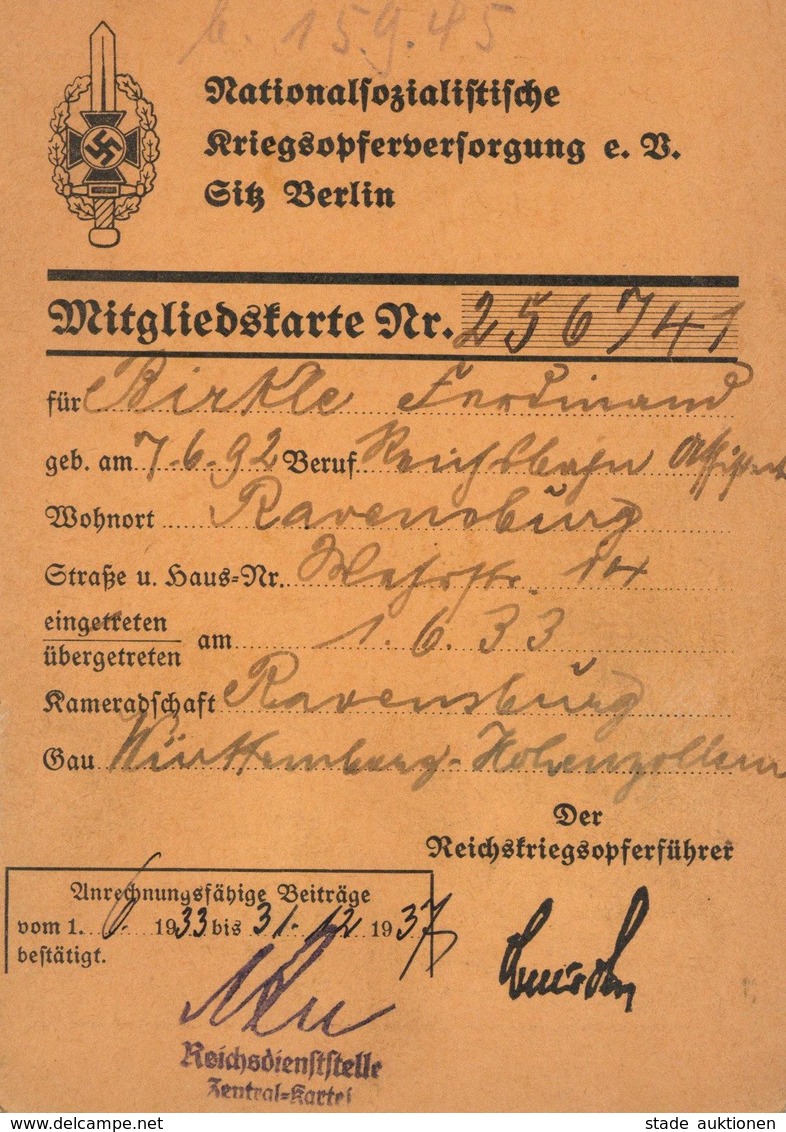 b. 15.9.45
Nationalsozialistische
Kriegsopferversorgung e. V.
Sitz Berlin
Mitgliedskarte Nr. 256741
für Birkle Ferdinand
geb. am 7.6.92 Beruf Reichsbahn Assistent
Wohnort Ravensburg
Straße u. Haus-Nr. 14
eingetreten
übergetreten am 1.6.33
Kameradschaft Ravensburg
Gau Württemberg-Hohenzollern
Der
Reichskriegsopferführer
Anrechnungsfähige Beiträge
vom 1. 6. 1933 bis 31. 12 1937
bestätigt.
Reichsdienststelle
Zentral-Kartei
delcampe.net
stade auktionen